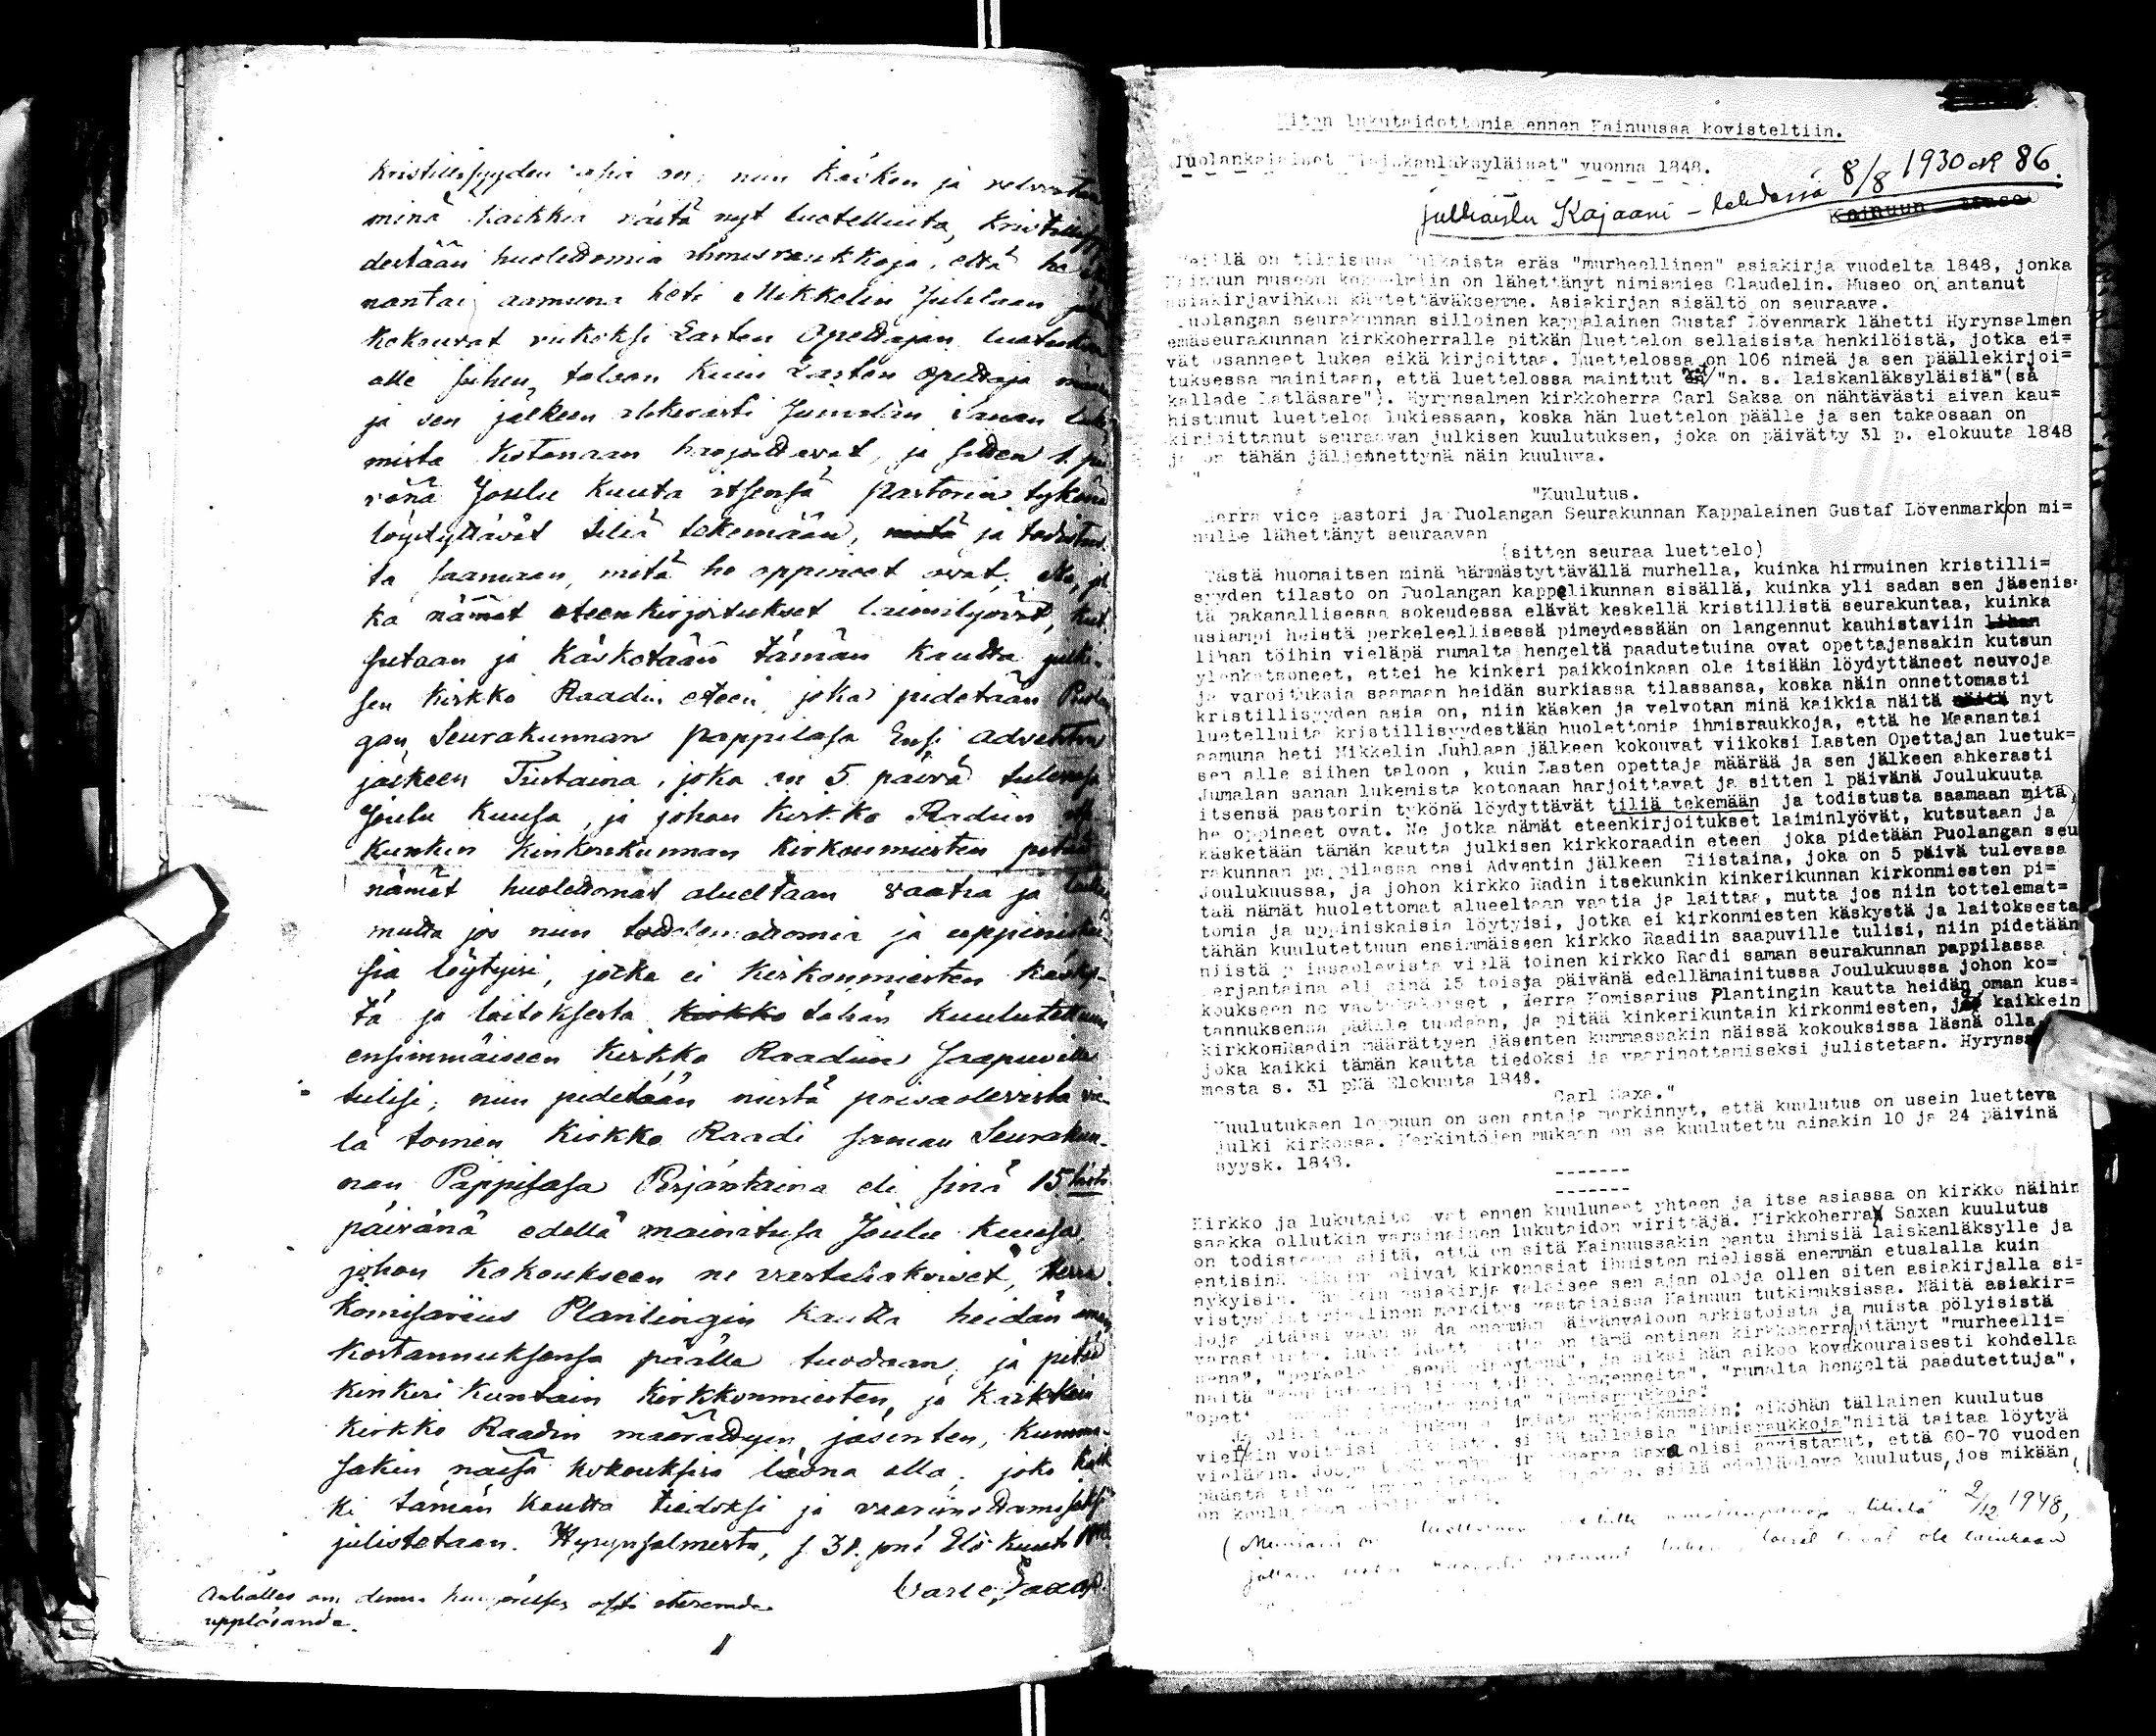 kristillisyyden asia on, niin käsken ja velvotan
minä kaikkia näitä nyt luotelluita, kristillisyy
destään huolettomia ihmisraukkoja, että he
nantai aamuna heti Mikkelin Juhlaan
kokouvat viikoksi Lasten Opettajan luetuksen
alle siihen taloon kuin Lasten opettaja määrä
ja sen jälkeen ahkerasti Jumalan Sanan luke
mista kotonaan harjoittavat, ja sitten 1. päi
vänä Joulu kuuta itsensä Pastorin tykönä
löydyttävät tiliä tekemään, mitä ja todistus
ta saamaan, mitä he oppineet ovat. Ne, jot
ka nämät eteenkirjoitukset laiminlyövät, kut
sutaan ja käsketään tämän kautta julki-
sen Kirkko Raadin eteen, joka pidetään Puolan
gan Seurakunnan pappilasa Ensi adventin
jälkeen Tiistaina, joka on 5. päivä tulevasa
Joulu kuusa, ja johon Kirkko Radiin its
kunkin kinkerikunnan Kirkonmiesten pitää
nämät huolettomat alueeltaan vaatia ja laitta
mutta jos niin tottelemattomia ja uppiniskai
sia löytyisi, jotka ei kirkonmiesten käskys-
tä ja laitoksesta kirkko tähän kuulutettuun
ensimmäiseen Kirkko Raadiin saapuville
tulisi; niin pidetään niistä poisaolevista vie-
lä toinen Kirkko Raadi saman Seurakun-
nan Pappilasa Perjantaina eli sinä 15 toista
päivänä edellä mainitusa Joulu kuusa,
johon kokoukseen ne vastahakoiset, Herra
Komisarius Plantingin kautta heidän oman
kostannuksensa päälle tuodaan, ja pitää
kinkeri kuntain kirkkonmiesten, ja kaikkein
Kirkko Raadin määrättyin jäsenten, kumma-
sakin näisä kokouksisa läsnä olla, joka kaik
ki tämän kautta tiedoksi ja vaariinottamiseksi
julistetaan. Hyrynsalmesta, s. 31. pnä Elo kuuta 1848.
Carl Saxa
Anhålles om denna kungörelses ofta
uppläsande.
Miten lukutaidottomia ennen Kainuussa kovisteltiin.
Puolankalaiset "laiskanläksyläiset" vuonna 1848.
Julkaistu Kajaani-lehdessä 8/8 1930 N 86.
Kainuun Museo
Meillä on tilaisuus julkaista eräs "murheellinen" asiakirja vuodelta 1848, jonka
Kainuun museon kokoelmiin on lähettänyt nimismies Claudelin. Museo on antanut
asiakirjavihkon käytettäväksemme. Asiakirjan sisältö on seuraava.
Puolangan seurakunnan silloinen kappalainen Gustaf Lövenmark lähetti Hyrynsalmen
emäseurakunnan kirkkoherralle pitkän luettelon sellaisista henkilöistä, jotka ei=
vät osanneet lukea eikä kirjoittaa. Luettelossa on 106 nimeä ja sen päällekirjoi=
tuksessa mainitaan, että luettelossa mainitut ovat "n. s. laiskanläksyläisiä"(så
kallade Latläsare"). Hyrynsalmen kirkkoherra Carl Saksa on nähtävästi aivan kau=
histunut luetteloa lukiessaan, koska hän luettelon päälle ja sen takaosaan on
kirjoittanut seuraavan julkisen kuulutuksen, joka on päivätty 31 p. elokuuta 1848
ja on tähän jäljennettynä näin kuuluva.
"Kuulutus.
Herra vice pastori ja Puolangan Seurakunnan Kappalainen Gustaf Lövenmark on mi=
nulle lähettänyt seuraavan
(sitten seuraa luettelo)
Tästä huomaitsen minä hämmästyttävällä murhella, kuinka hirmuinen kristilli=
syyden tilasto on Puolangan kappelikunnan sisällä, kuinka yli sadan sen jäsenis=
tä pakanallisessa sokeudessa elävät keskellä kristillistä seurakuntaa, kuinka
usiampi heistä perkeleellisessä pimeydessään on langennut kauhistaviin lihan
lihan töihin vieläpä rumalta hengeltä paadutetuina ovat opettajansakin kutsun
ylenkatsoneet, ettei he kinkeri paikkoinkaan ole itsiään löydyttäneet neuvoja
ja varoituksia saamaan heidän surkiassa tilassansa, koska näin onnettomasti
kristillisyyden asia on, niin käsken ja velvotan minä kaikkia näitä näitä nyt
luetelluita kristillisyydestään huolettomia ihmisraukkoja, että he Maanantai
aamuna heti Mikkelin Juhlaan jälkeen kokouvat viikoksi Lasten Opettajan luetuk=
sen alle siihen taloon , kuin Lasten opettaja määrää ja sen jälkeen ahkerasti
Jumalan sanan lukemista kotonaan harjoittavat ja sitten 1 päivänä Joulukuuta
itsensä pastorin tykönä löydyttävät tiliä tekemään ja todistusta saamaan mitä
he oppineet ovat. Ne jotka nämät eteenkirjoitukset laiminlyövät, kutsutaan ja
käsketään tämän kautta julkisen kirkkoraadin eteen joka pidetään Puolangan seu
rakunnan pappilassa ensi Adventin jälkeen Tiistaina, joka on 5 päivä tulevasa
Joulukuussa, ja johon kirkko Radin itsekunkin kinkerikunnan kirkonmiesten pi=
tää nämät huolettomat alueeltaan vaatia ja laittaa, mutta jos niin tottelemat=
tomia ja uppiniskaisia löytyisi, jotka ei kirkonmiesten käskystä ja laitoksesta
tähän kuulutettuun ensimmäiseen kirkko Raadiin saapuville tulisi, niin pidetään
niistä poissaolevista vielä toinen kirkko Raadi saman seurakunnan pappilassa
Perjantaina eli sinä 15 toista päivänä edellämainitussa Joulukuussa johon ko=
koukseen ne vastahakoiset , Herra Komisarius Plantingin kautta heidän oman kus=
tannuksensa päälle tuodaan, ja pitää kinkerikuntain kirkonmiesten, ja kaikkein
kirkkonRaadin määrättyen jäsenten kummassakin näissä kokouksissa läsnä olla
joka kaikki tämän kautta tiedoksi ja vaarinottamiseksi julistetaan. Hyrynsa
mesta s. 31 pNä Elokuuta 1848.
Carl Saxa."
Kuulutuksen loppuun on sen antaja merkinnyt, että kuulutus on usein luetteva
julki kirkossa. Merkintöjen mukaan on se kuulutettu ainakin 10 ja 24 päivinä
syysk. 1848.
-------
-------
Kirkko ja lukutaito ovat ennen kuuluneet yhteen ja itse asiassa on kirkko näihin
saakka ollutkin varsinainen lukutaidon virittäjä. Kirkkoherra Saxan kuulutus
on todisteena siitä, että on sitä Kainuussakin pantu ihmisiä laiskanläksylle ja
entisinä aikoina olivat kirkonasiat ihmisten mielissä enemmän etualalla kuin
nykyisin. asiakirja valaisee sen ajan oloja ollen siten asiakirjalla si=
vistyshistoriallinen merkitys vastaisissa Kainuun tutkimuksissa. Näitä asiakir=
joja pitäisi vaan saada enemmän päivänvaloon arkistoista ja muista pölyisistä
varastoista. on tämä entinen kirkkoherra pitänyt "murheelli=
sena", ja siksi hän aikoo kovakouraisesti kohdella
näitä langenneita", "rumalta hengeltä paadutettuja",
"ihmisraukkoja"
eiköhän tällainen kuulutus
tällaisia "ihmisraukkoja"niitä taitaa löytyä
vieläkin. Saxa olisi aavistanut, että 60-70 vuoden
päästä edelläoleva kuulutus, jos mikään,
on
2/12 1948,
ole lainkaan